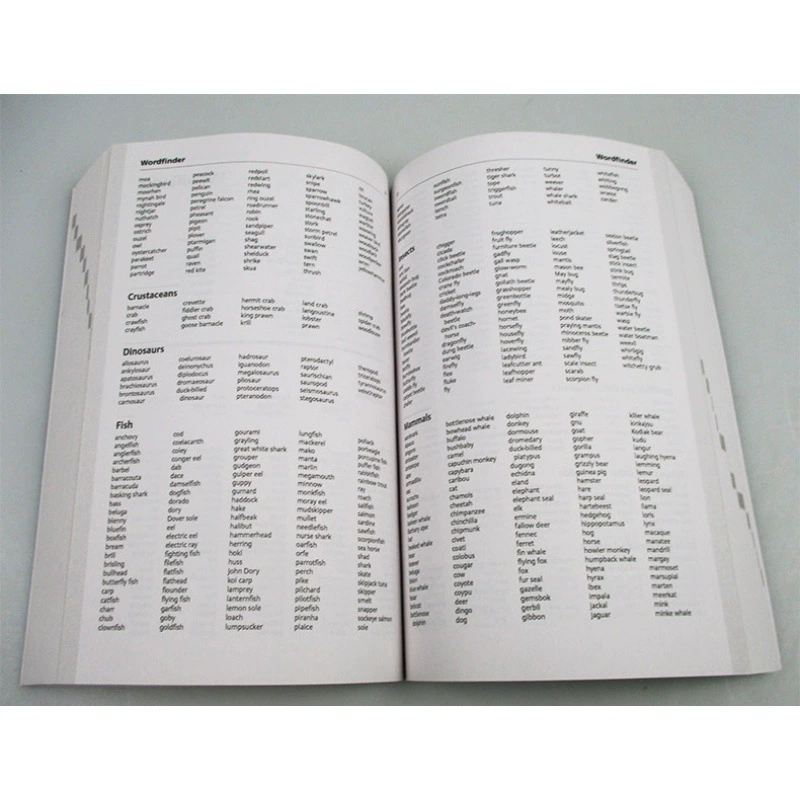 Wordfinder
moa
mockingbird
moorhen
mynah bird
nightingale
nightjar
nuthatch
osprey
ostrich
ouzel
owl
oystercatcher
parakeet
parrot
partridge
peacock
peewit
pelican
penguin
peregrine falcon
petrel
pheasant
pigeon
pipit
plover
ptarmigan
puffin
quail
raven
red kite
redpoll
redstart
redwing
rhea
ring ouzel
roadrunner
robin
rook
sandpiper
seagull
shag
shearwater
shelduck
shrike
skua
skylark
snipe
sparrow
sparrowhawk
spoonbill
starling
stonechat
stork
storm petrel
sunbird
swallow
swan
swift
tern
thrush
Crustaceans
barnacle
crab
crawfish
crayfish
crevette
fiddler crab
ghost crab
goose barnacle
hermit crab
horseshoe crab
king prawn
krill
land crab
langoustine
lobster
prawn
shrimp
spider crab
woodlouse
Dinosaurs
allosaurus
ankylosaur
apatosaurus
brachiosaurus
brontosaurus
carnosaur
coelurosaur
deinonychus
diplodocus
dromaeosaur
duck-billed
dinosaur
hadrosaur
iguanodon
megalosaurus
pliosaur
protoceratops
pteranodon
pterodactyl
raptor
saurischian
sauropod
seismosaurus
stegosaurus
theropod
triceratops
tyrannosaurus
velociraptor
Fish
anchovy
angelfish
anglerfish
archerfish
barbel
barracouta
barracuda
basking shark
bass
beluga
blenny
bluefin
boxfish
bream
brill
brisling
bullhead
butterfly fish
carp
catfish
charr
chub
clownfish
cod
coelacanth
coley
conger eel
dab
dace
damselfish
dogfish
dorado
dory
Dover sole
eel
electric eel
electric ray
fighting fish
filefish
flatfish
flathead
flounder
flying fish
garfish
goby
goldfish
gourami
grayling
great white shark
grouper
gudgeon
gulper eel
guppy
gurnard
haddock
hake
halfbeak
halibut
hammerhead
herring
hoki
huss
John Dory
koi carp
lamprey
lanternfish
lemon sole
loach
lumpsucker
lungfish
mackerel
mako
manta
marlin
megamouth
minnow
monkfish
moray eel
mudskipper
mullet
needlefish
nurse shark
oarfish
orfe
parrotfish
perch
pike
pilchard
pilotfish
pipefish
piranha
plaice
pollack
porbeagle
porcupine fish
puffer fish
rainbow trout
ray
roach
sailfish
salmon
sardine
sawfish
scorpionfish
sea horse
shad
shark
skate
skipjack tuna
skipper
smelt
snapper
sockeye salmon
sole
Wordfinder
sunfish
surgeonfish
swordfish
tench
tetra
thresher
tiger shark
tope
triggerfish
trout
tuna
tunny
turbot
weever
whaler
whale shark
whitebait
whitefish
whiting
wobbegong
wrasse
zander
Insects
chigger
cicada
click beetle
cockchafer
cockroach
Colorado beetle
crane fly
cricket
daddy-long-legs
damselfly
death-watch
beetle
devil's coach-
horse
dragonfly
dung beetle
earwig
firefly
flea
fluke
fly
froghopper
fruit fly
furniture beetle
gadfly
gall wasp
glow-worm
gnat
goliath beetle
grasshopper
greenbottle
greenfly
honeybee
hornet
horsefly
housefly
hoverfly
lacewing
ladybird
leafcutter ant
leafhopper
leaf miner
leatherjacket
leech
locust
louse
mantis
mason bee
May bug
mayfly
mealy bug
midge
mosquito
moth
pond skater
praying mantis
rhinoceros beetle
robber fly
sandfly
sawfly
scale insect
scarab
scorpion fly
sexton beetle
silverfish
springtail
stag beetle
stick insect
stink bug
termite
thrips
thunderbug
thunderfly
tsetse fly
warble fly
wasp
water beetle
water boatman
weevil
whirligig
whitefly
witchetty grub
Mammals
bottlenose whale
bowhead whale
buffalo
bushbaby
camel
capuchin monkey
capybara
caribou
cat
chamois
cheetah
chimpanzee
chinchilla
chipmunk
civet
coati
colobus
cougar
cow
coyote
coypu
deer
dingo
dog
dolphin
donkey
dormouse
dromedary
duck-billed
platypus
dugong
echidna
eland
elephant
elephant seal
elk
ermine
fallow deer
fennec
ferret
fin whale
flying fox
fox
fur seal
gazelle
gemsbok
gerbil
gibbon
giraffe
gnu
goat
gopher
gorilla
grampus
grizzly bear
guinea pig
hamster
hare
harp seal
hartebeest
hedgehog
hippopotamus
hog
horse
howler monkey
humpback whale
hyena
hyrax
ibex
impala
jackal
jaguar
killer whale
kinkajou
Kodiak bear
kudu
langur
laughing hyena
lemming
lemur
leopard
leopard seal
lion
llama
loris
lynx
macaque
manatee
mandrill
margay
marmoset
marsupial
marten
meerkat
mink
minke whale